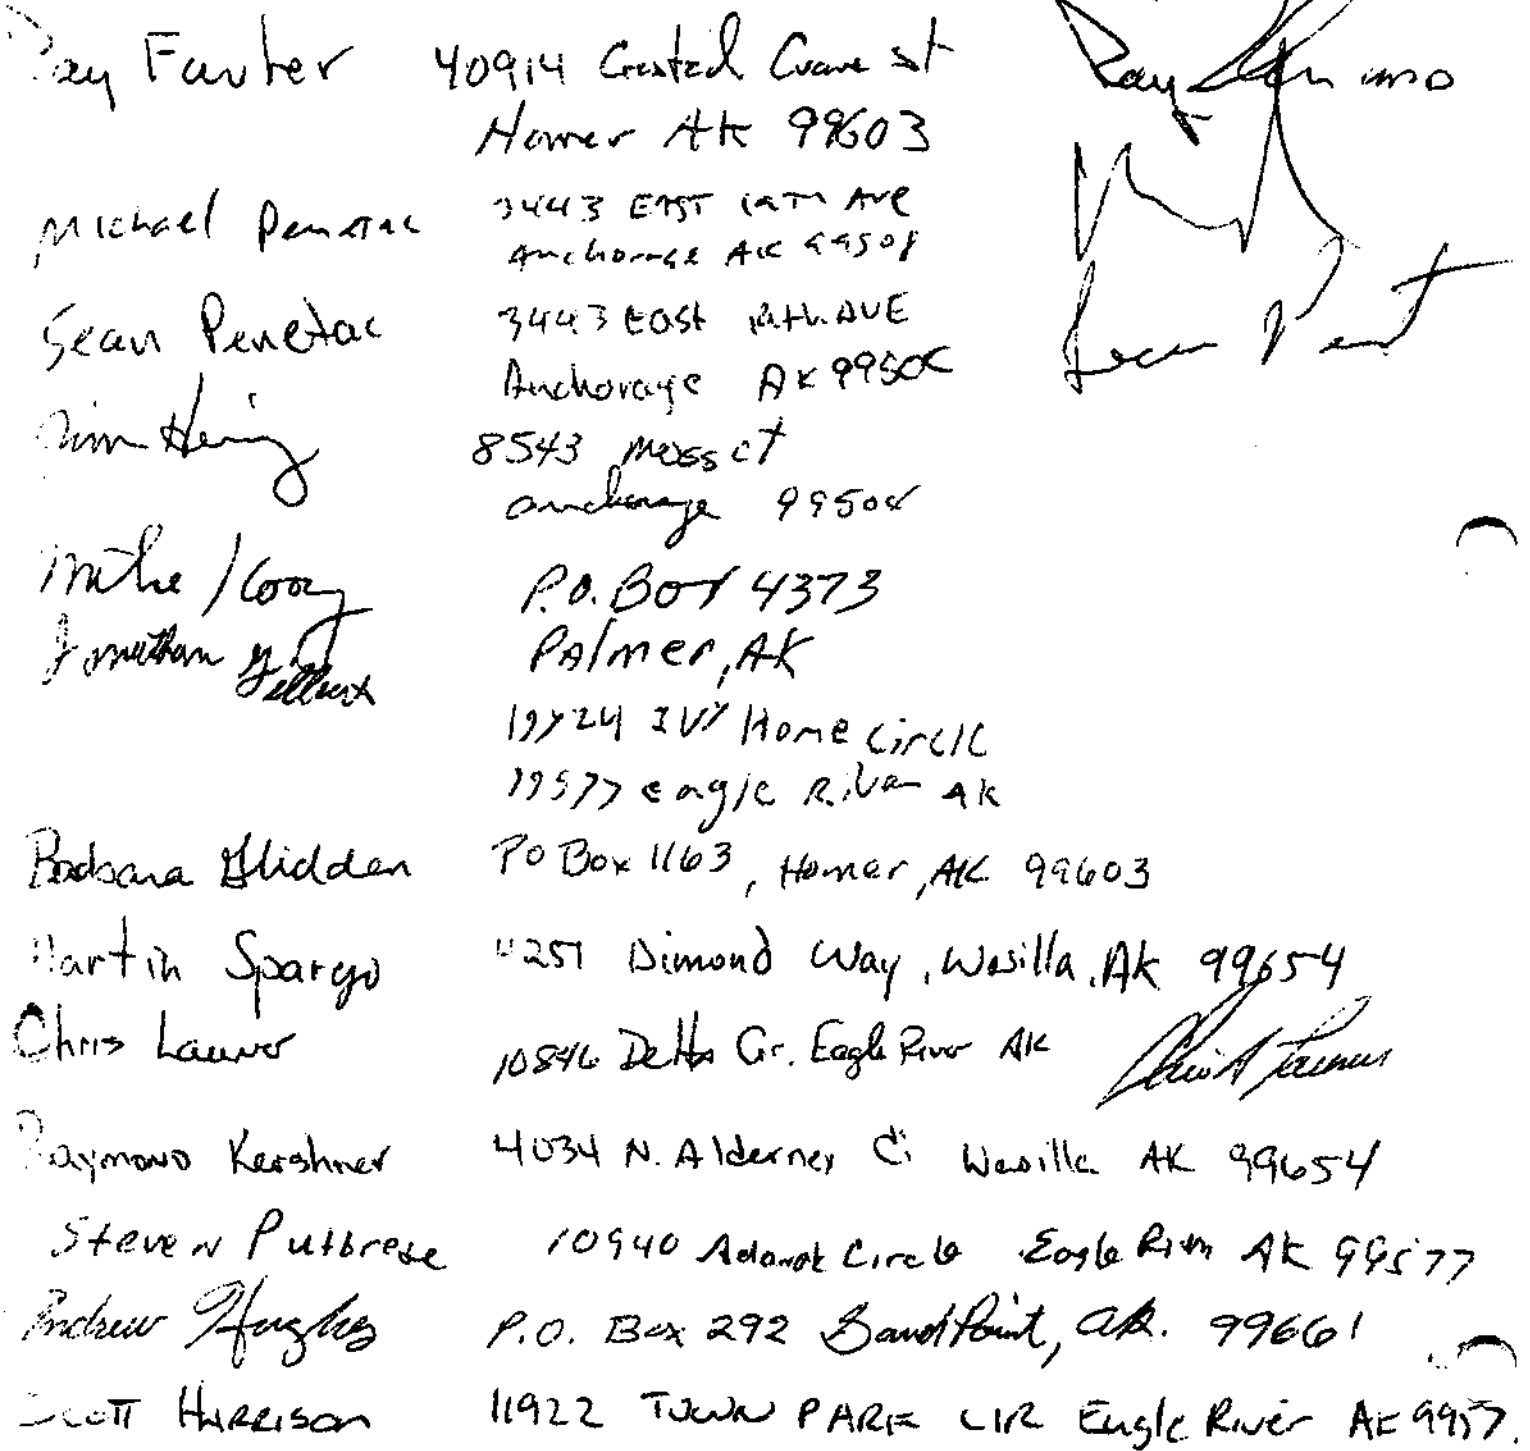 Ray 40914 Crested Crane st Ray
Homer Ak 99603
Michael 3443 EAST 19TH Ave
Anchorage AK 99508
Sean Penetac 3443 EAST 19th AVE Sean
Anchorage AK 99508
8543 Moss ct
anchorage 9950
Mike P.O. Box 4373
Jonathan Palmer, AK
IVY Home Circle
99577 eagle River AK
Barbara Glidden PO Box 1163, Homer, AK 99603
Martin Spargo 4251 Dimond Way, Wasilla, Ak 99654
Chris 10846 Delta Cir. Eagle River AK Chris
Raymond Kershner 4034 N. Alderney Ci Wasilla AK 99654
Steven Putbrese 10940 Circle Eagle River AK 99577
Andrew Hughes P.O. Box 292 Sand Point, AK. 99661
Scott HARRISON 11922 TOWN PARK CIR Eagle River AK 9957